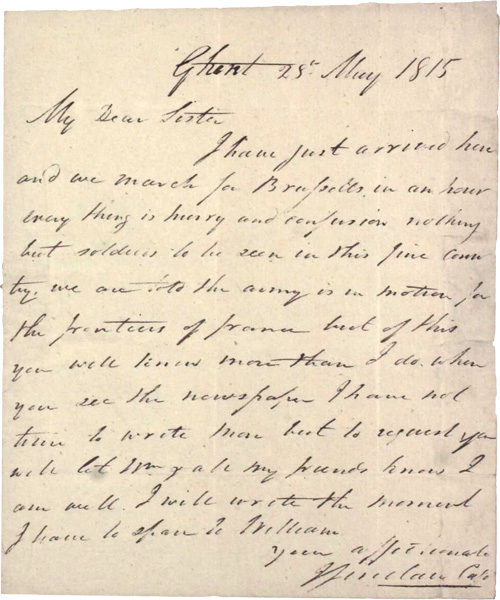 Ghent 28th May 1815
My Dear Sister
I have just arrived here
and we march for Brussells in an hour
every thing is hurry and confusion nothing
but soldiers to be seen in this fine coun
try. we are told the army is in motion for
the frontiers of france but of this
you will know more than I do. when
you see the newspaper I have not
time to write more but to request you
will let & all my friends know I
am well. I will wrote the moment
I have to spare to William
your affectionate